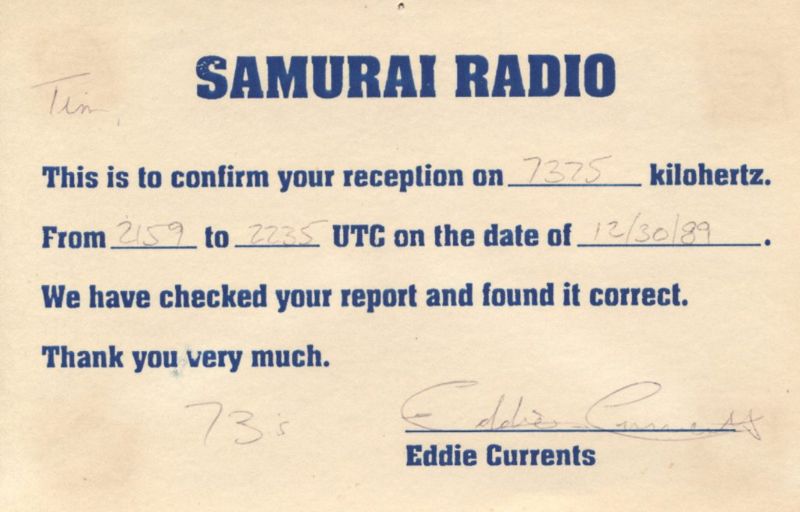 SAMURAI RADIO
Tim,
This is to confirm your reception on 7375 kilohertz.
From 2159 to 2235 UTC on the date of 12/30/89.
We have checked your report and found it correct.
Thank you very much.
73's
Eddie Currents
Eddie Currents